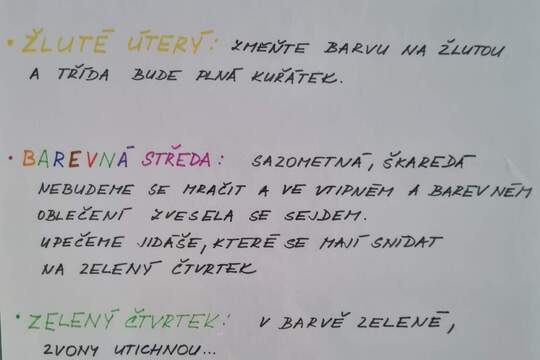 • ŽLUTÉ ÚTERÝ: ZMEŇTE BARVU NA ŽLUTOU
A TŘÍDA BUDE PLNÁ KUŘÁTEK.
• BAREVNÁ STŘEDA: SAZOMETNÁ, ŠKAREDÁ
NEBUDEME SE MRAČIT A VE VTIPNÉM A BAREVNÉM
OBLEČENÍ ZVESELA SE SEJDEM.
UPEČEME JIDÁŠE, KTERÉ SE MAJÍ SNÍDAT
NA ZELENÝ ČTVRTEK
• ZELENÝ ČTVRTEK: V BARVĚ ZELENÉ,
ZVONY UTICHNOU...